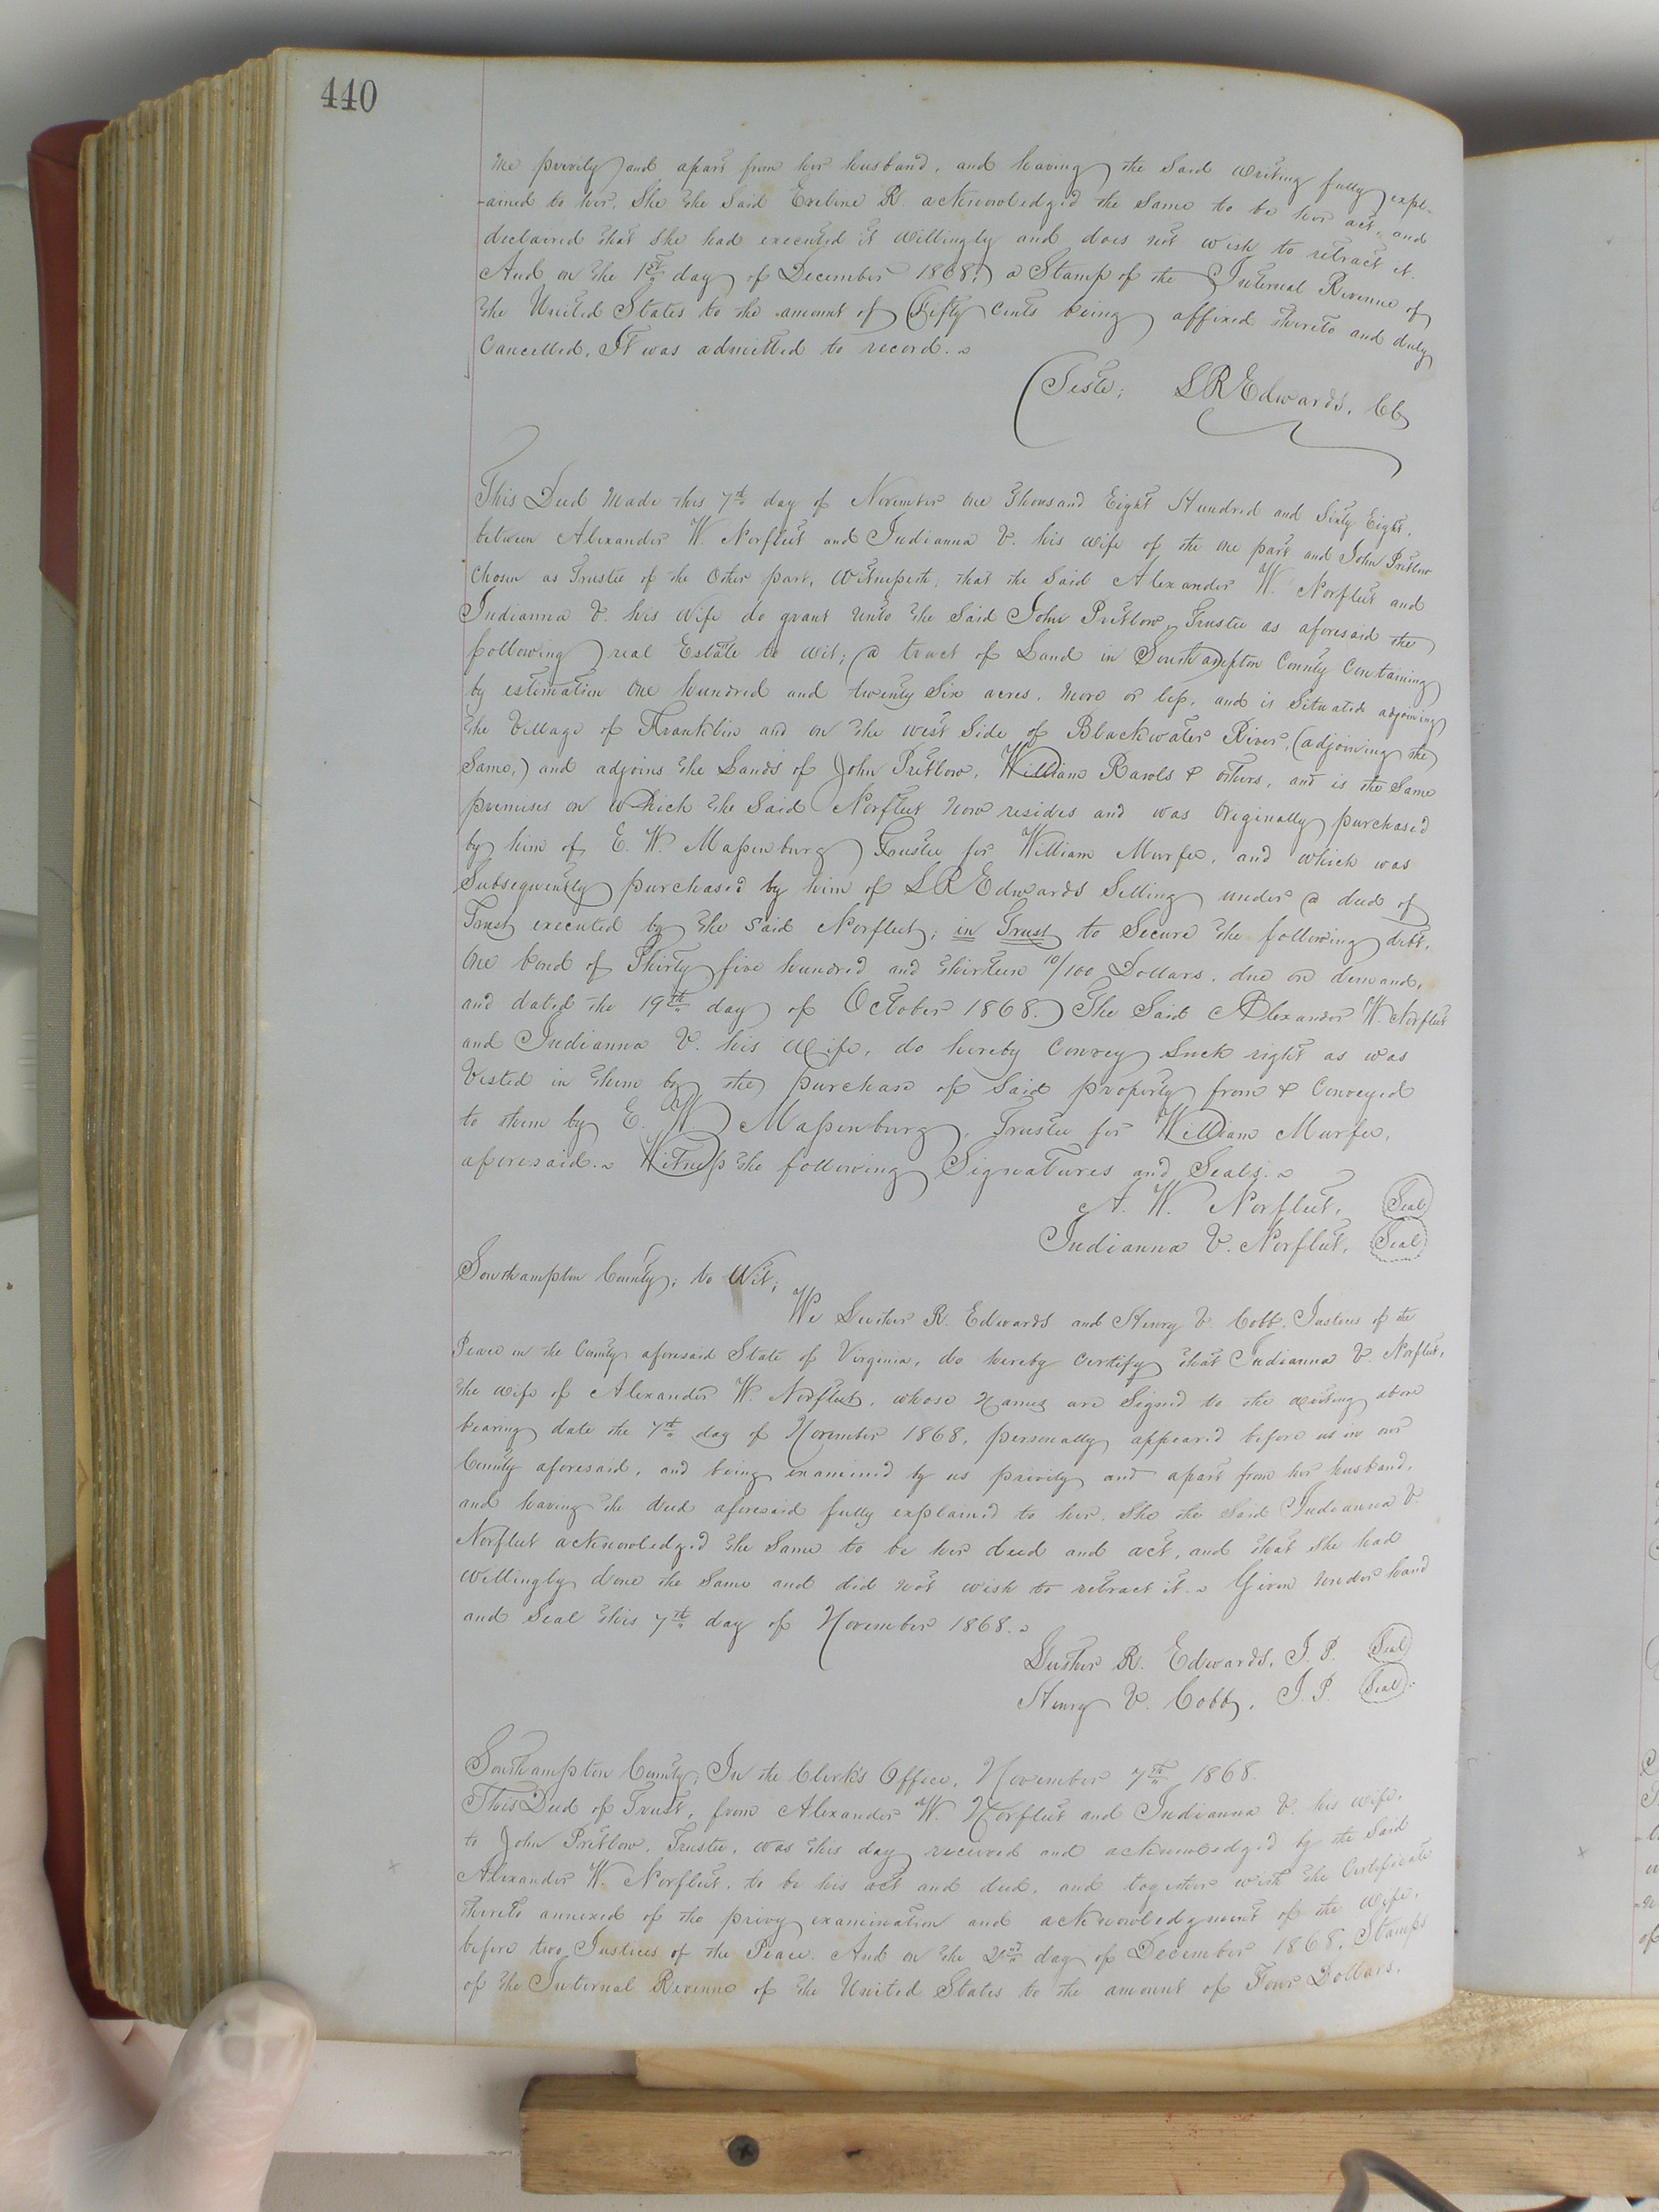 440
me privily and apart from her husband, and having the said writing fully expl-
-ained to her, She the Said Eveline R. acknowledged the same to be her act, and
declaired that She had executed it willingly and does not wish to retract it.
And on the 1st day of December 1868, a Stamp of the Internal Revenue of
the United States to the amount of Fifty Cents being affixed thereto and duly
Cancelled, It was admitted to record.
Teste; LR Edwards, Clk
This Deed made this 7th day of November One Thousand Eight Hundred and Sixty Eight,
between Alexander W. Norfleet and Indianna V. his wife of the one part and John Pretlow
Chosen as Trustee of the Other part, Witnesseth, that the said Alexander W. Norfleet and
Indianna V. his Wife do grant unto the Said John Pretlow, Trustee as aforesaid the
following real Estate to wit; a tract of Land in Southampton County Containing
by estimation One hundred and twenty Six acres, more or less, and is Situated adjoining
the Village of Franklin and on the west Side of Blackwater River, (adjoining the
Same,) and adjoins the Lands of John Pretlow, William Rawls & others, and is the Same
premises on which the Said Norfleet now resides and was Originally purchased
by him of E. W. Massenburg Trustee for William Murfee, and which was
Subsequently purchased by him of LR Edwards Selling under a deed of
Trust executed by the said Norfleet; in Trust to Secure the following debt,
One bond of Thirty five hundred and thirteen 10/100 Dollars, due on demand,
and dated the 19th day of October 1868. The Said Alexander W. Norfleet
and Indianna V. his Wife, do hereby Convey Such right as was
Vested in them by the purchase of Said property from & Conveyed
to them by E. W. Massenburg, Trustee for William Murfee,
aforesaid. Witness the following Signatures and Seals.
A. W. Norfleet, Seal
Indianna V. Norfleet, Seal
Southampton County; to Wit;
We Luther R. Edwards and Henry V. Cobb, Justices of the
Peace in the County aforesaid State of Virginia, do hereby Certify that Indianna V. Norfleet,
the wife of Alexander W. Norfleet, whose Names are Signed to the writing above
bearing date the 7th day of November 1868, personally appeared before us in our
County aforesaid, and being examined by us privily and apart from her husband,
and having the deed aforesaid fully explained to her, She the Said Indianna V.
Norfleet acknowledged the Same to be her deed and act, and that She had
willingly done the Same and did not wish to retract it. Given under hand
and Seal this 7th day of November 1868.
Luther R. Edwards, J. P. Seal
Henry V. Cobb, J. P. Seal
Southampton County; In the Clerk's Office, November 7th 1868.
This Deed of Trust, from Alexander W. Norfleet and Indianna V. his wife,
to John Pretlow, Trustee, was this day received and acknowledged by the Said
Alexander W. Norfleet, to be his act and deed, and together with the Certificate
thereto annexed of the privy examination and acknowledgment of the wife,
before two Justices of the Peace. And on the day of December 1868, Stamps
of the Internal Revenue of the United States to the amount of Four Dollars,